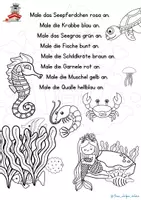 Male das Seepferdchen rosa an.
Male die Krabbe blau an.
Male das Seegras grün an.
Male die Fische bunt an.
Male die Schildkröte braun an.
Male die Garnele rot an.
Male die Muschel gelb an.
Male die Qualle hellblau an.